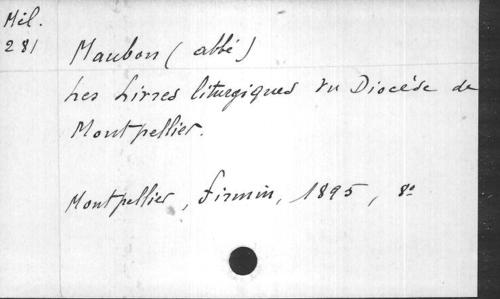 Mil.
281
Maubon (abbé)
Les Livres liturgiques du Diocèse de
Montpellier.
Montpellier, Firmin, 1895, 8º